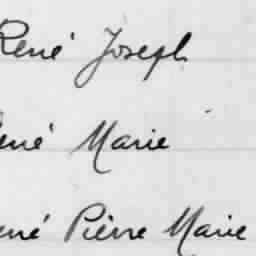 René Joseph
ené Marie
ené Pierre Marie